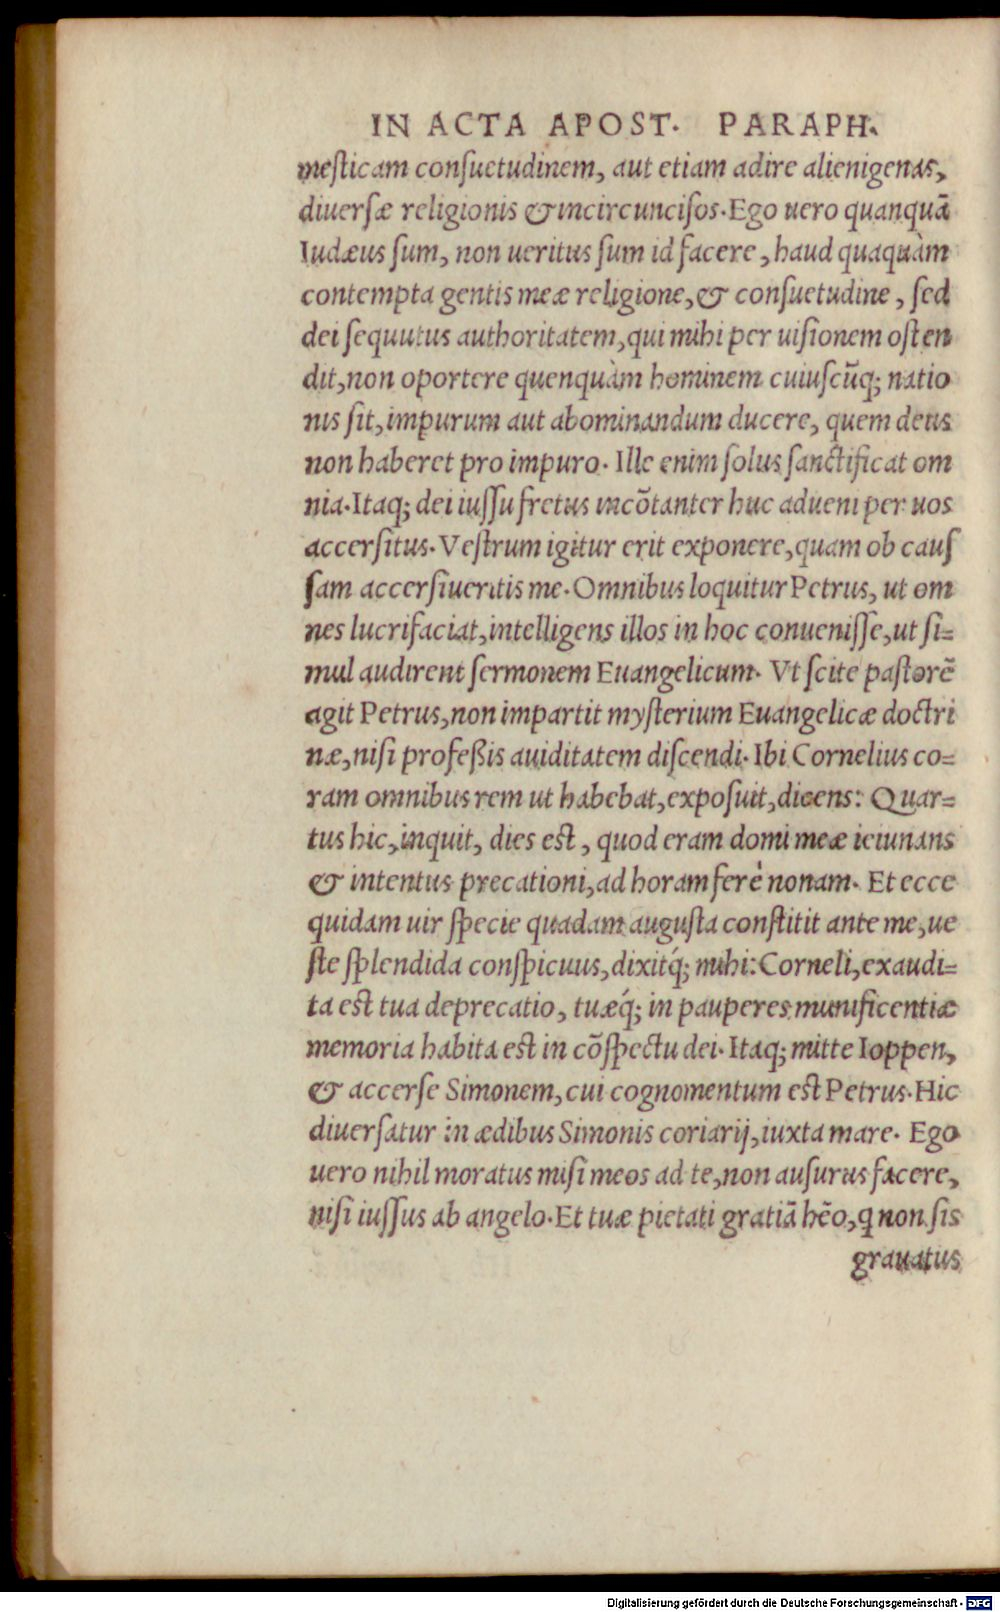 IN ACTA APOST. PARAPH.
mesticam consuetudinem, aut etiam adire alienigenas,
diuersæ religionis & incircuncisos. Ego uero quanquā
Iudæus sum, non ueritus sum id facere, haud quaquàm
contempta gentis meæ religione, & consuetudine, sed
dei sequutus authoritatem, qui mihi per uisionem osten
dit, non oportere quenquàm hominem cuiuscūq; natio
nis sit, impurum aut abominandum ducere, quem deus
non haberet pro impuro. Ille enim solus sanctificat om
nia. Itaq; dei iussu fretus incōtanter huc adueni per uos
accersitus. Vestrum igitur erit exponere, quam ob caus
sam accersiueritis me. Omnibus loquitur Petrus, ut om
nes lucrifaciat, intelligens illos in hoc conuenisse, ut si=
mul audirent sermonem Euangelicum. Vt scite pastorē
agit Petrus, non impartit mysterium Euangelicæ doctri
næ, nisi profeßis auiditatem discendi. Ibi Cornelius co=
ram omnibus rem ut habebat, exposuit, dicens: Quar=
tus hic, inquit, dies est, quod eram domi meæ ieiunans
& intentus precationi, ad horam ferè nonam. Et ecce
quidam uir specie quadam augusta constitit ante me, ue
ste splendida conspicuus, dixitq́; mihi: Corneli, exaudi=
ta est tua deprecatio, tuæq́; in pauperes munificentiæ
memoria habita est in cōspectu dei. Itaq; mitte Ioppen,
& accerse Simonem, cui cognomentum est Petrus. Hic
diuersatur in ædibus Simonis coriarij, iuxta mare. Ego
uero nihil moratus misi meos ad te, non ausurus facere,
nisi iussus ab angelo. Et tuæ pietati gratiā hēo, q non sis
grauatus
Digitalisierung gefördert durch die Deutsche Forschungsgemeinschaft - DFG